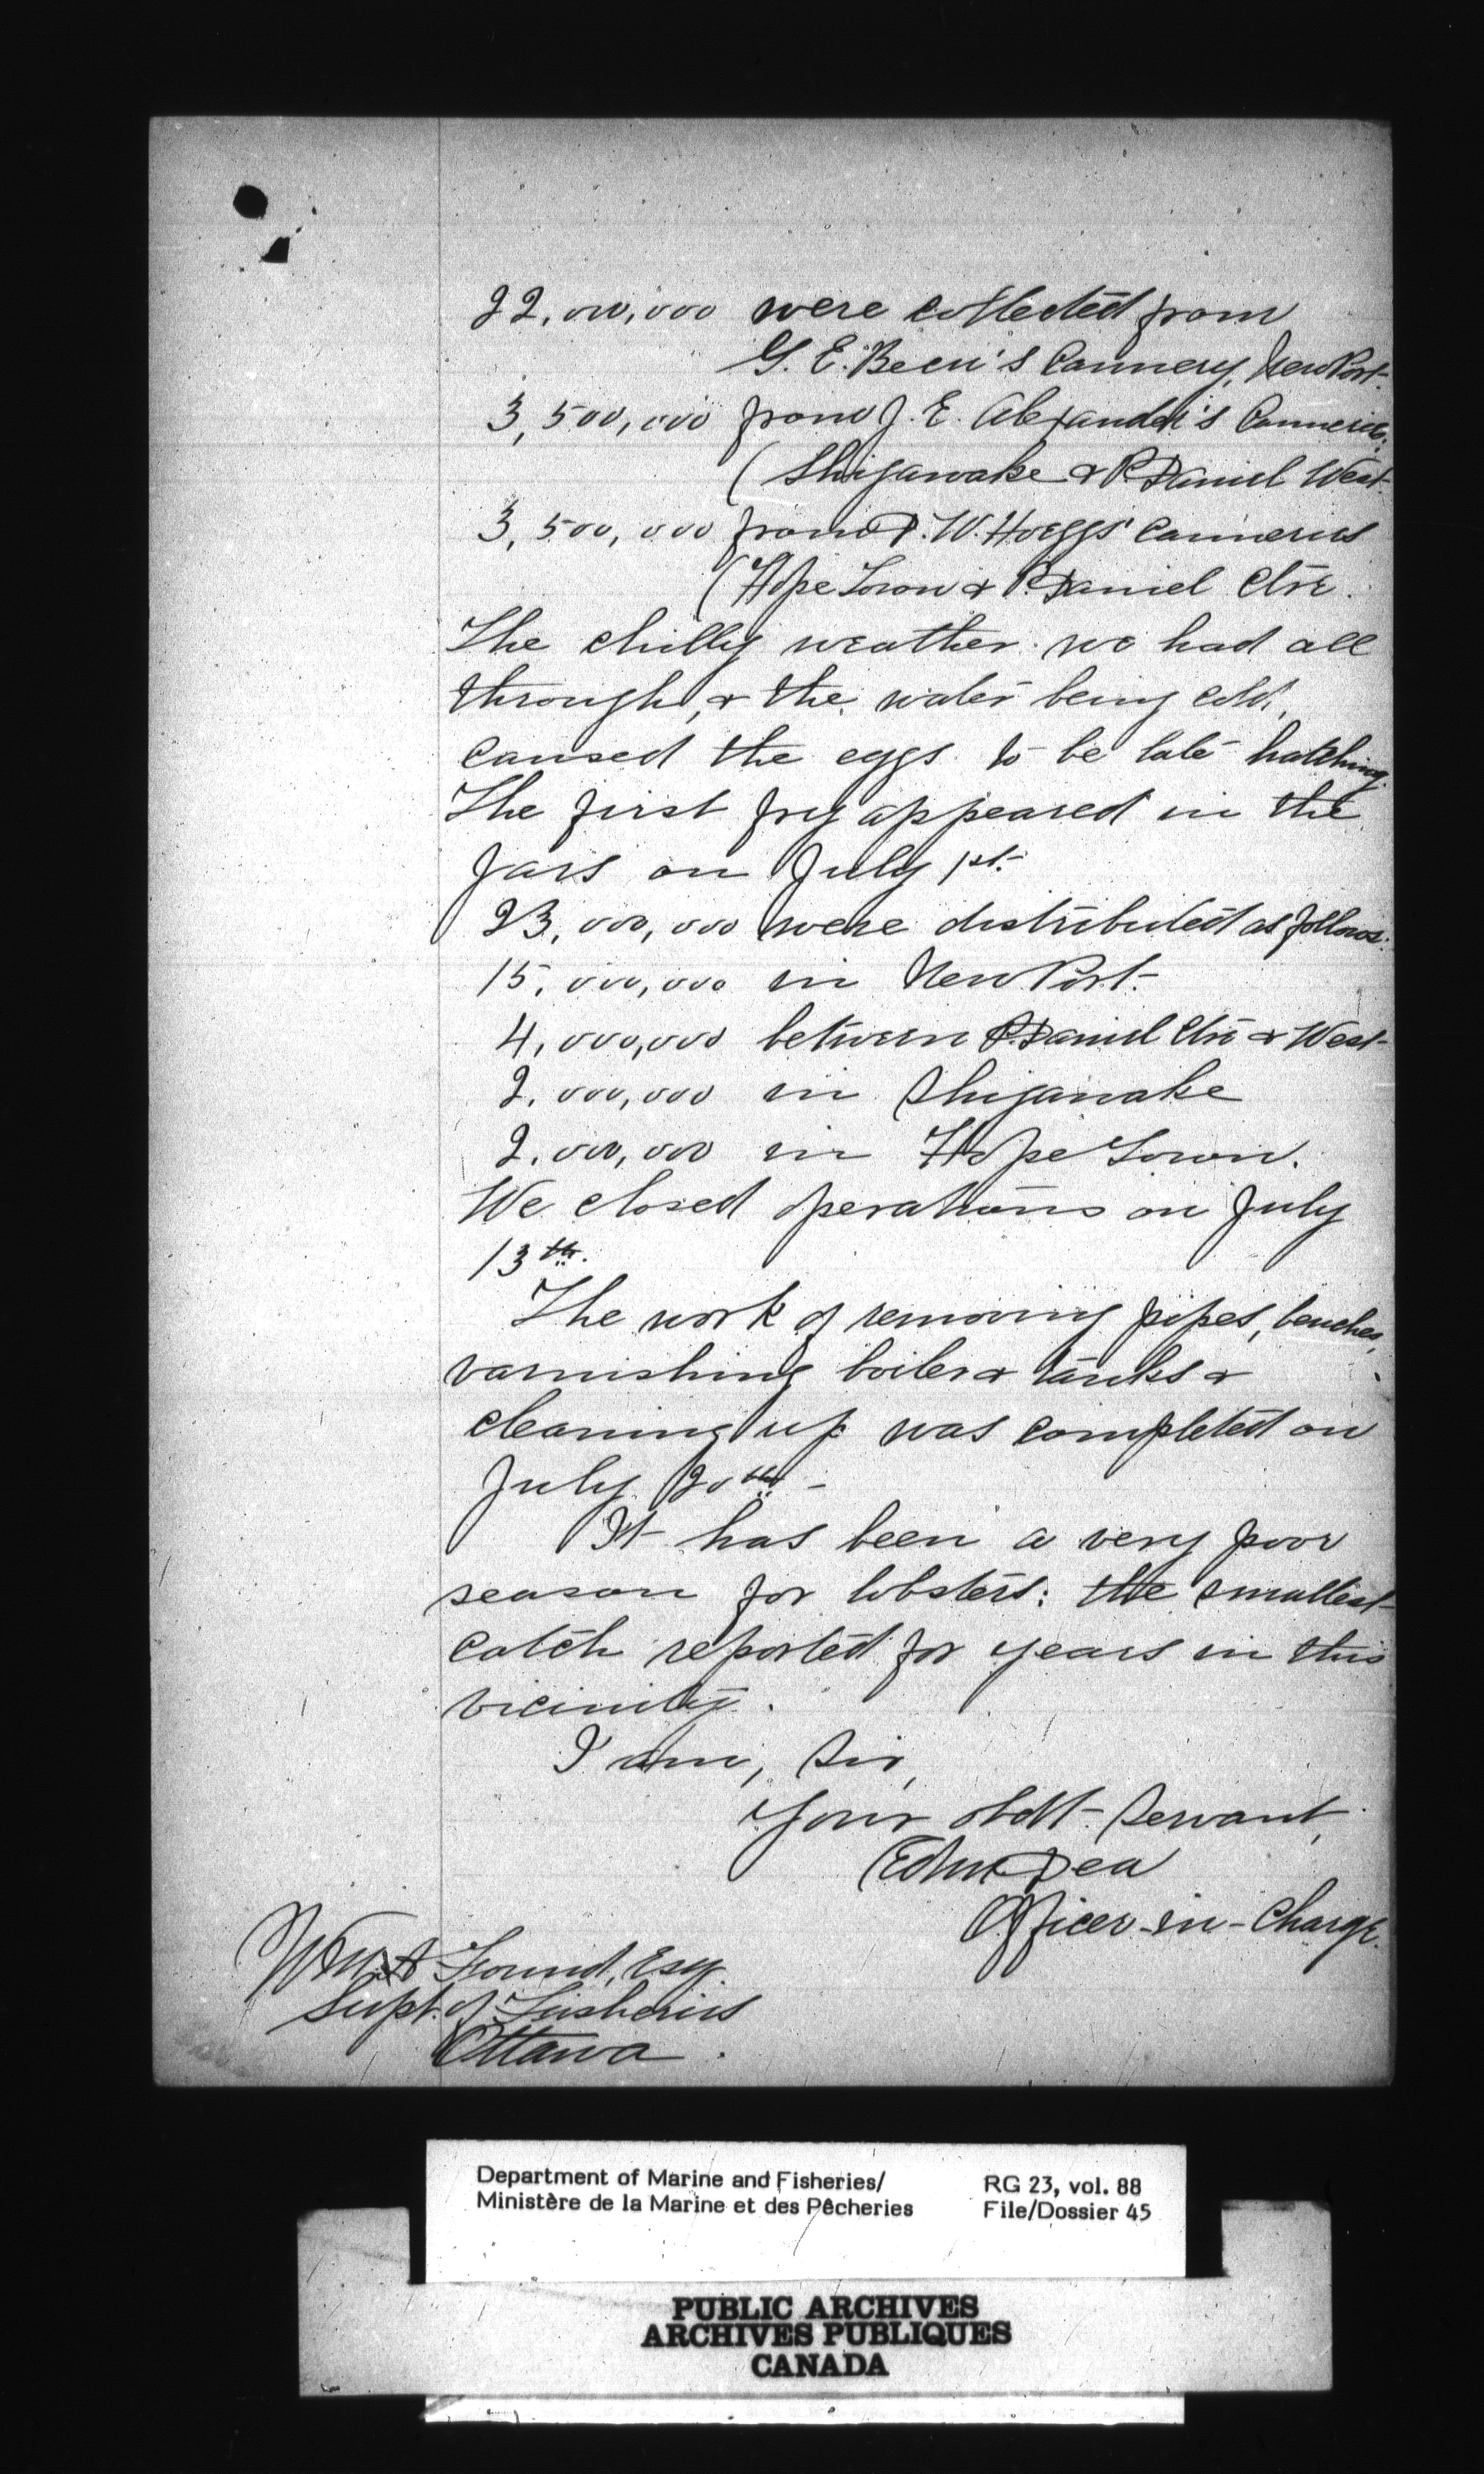 22,000,000 were collected from
G. E. Been's Cannery, New Port.
3,500,000 from J. E. Alexander's Canneries.
(Shigawake & P. Daniel West.
3,500,000 from D. W. Hoeggs' Canneries
(Hope Town & P. Daniel Ctre.
The chilly weather we had all
through, & the water being cold,
caused the eggs to be late hatching.
The first fry appeared in the
jars on July 1st.
23,000,000 were distributed as follows:
15,000,000 in New Port.
4,000,000 between P. Daniel Ctre & West
2,000,000 in Shigawake
2,000,000 in Hope Town.
We closed operations on July
13th.
The work of removing pipes, benches,
varnishing boiler & tanks &
cleaning up was completed on
July 20th -
It has been a very poor
season for lobsters: the smallest
catch reported for years in this
vicinity.
I am, Sir,
Your obdt. Servant,
Edm Dea
Officer-in-Charge.
Wm A Found, Esq.
Supt. of Fisheries
Ottawa.
Department of Marine and Fisheries/
Ministère de la Marine et des Pêcheries
RG 23, vol. 88
File/Dossier 45
PUBLIC ARCHIVES
ARCHIVES PUBLIQUES
CANADA